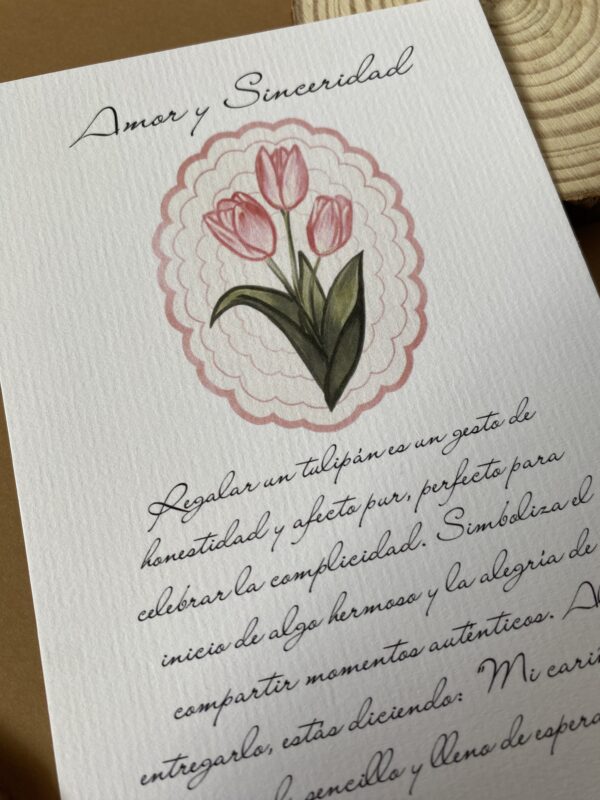 Amor y Sinceridad
Regalar un tulipán es un gesto de
honestidad y afecto pur, perfecto para
celebrar la complicidad. Simboliza el
inicio de algo hermoso y la alegría de
compartir momentos auténticos. Al
entregarlo, estás diciendo: "Mi cariñ
sencillo y lleno de espera